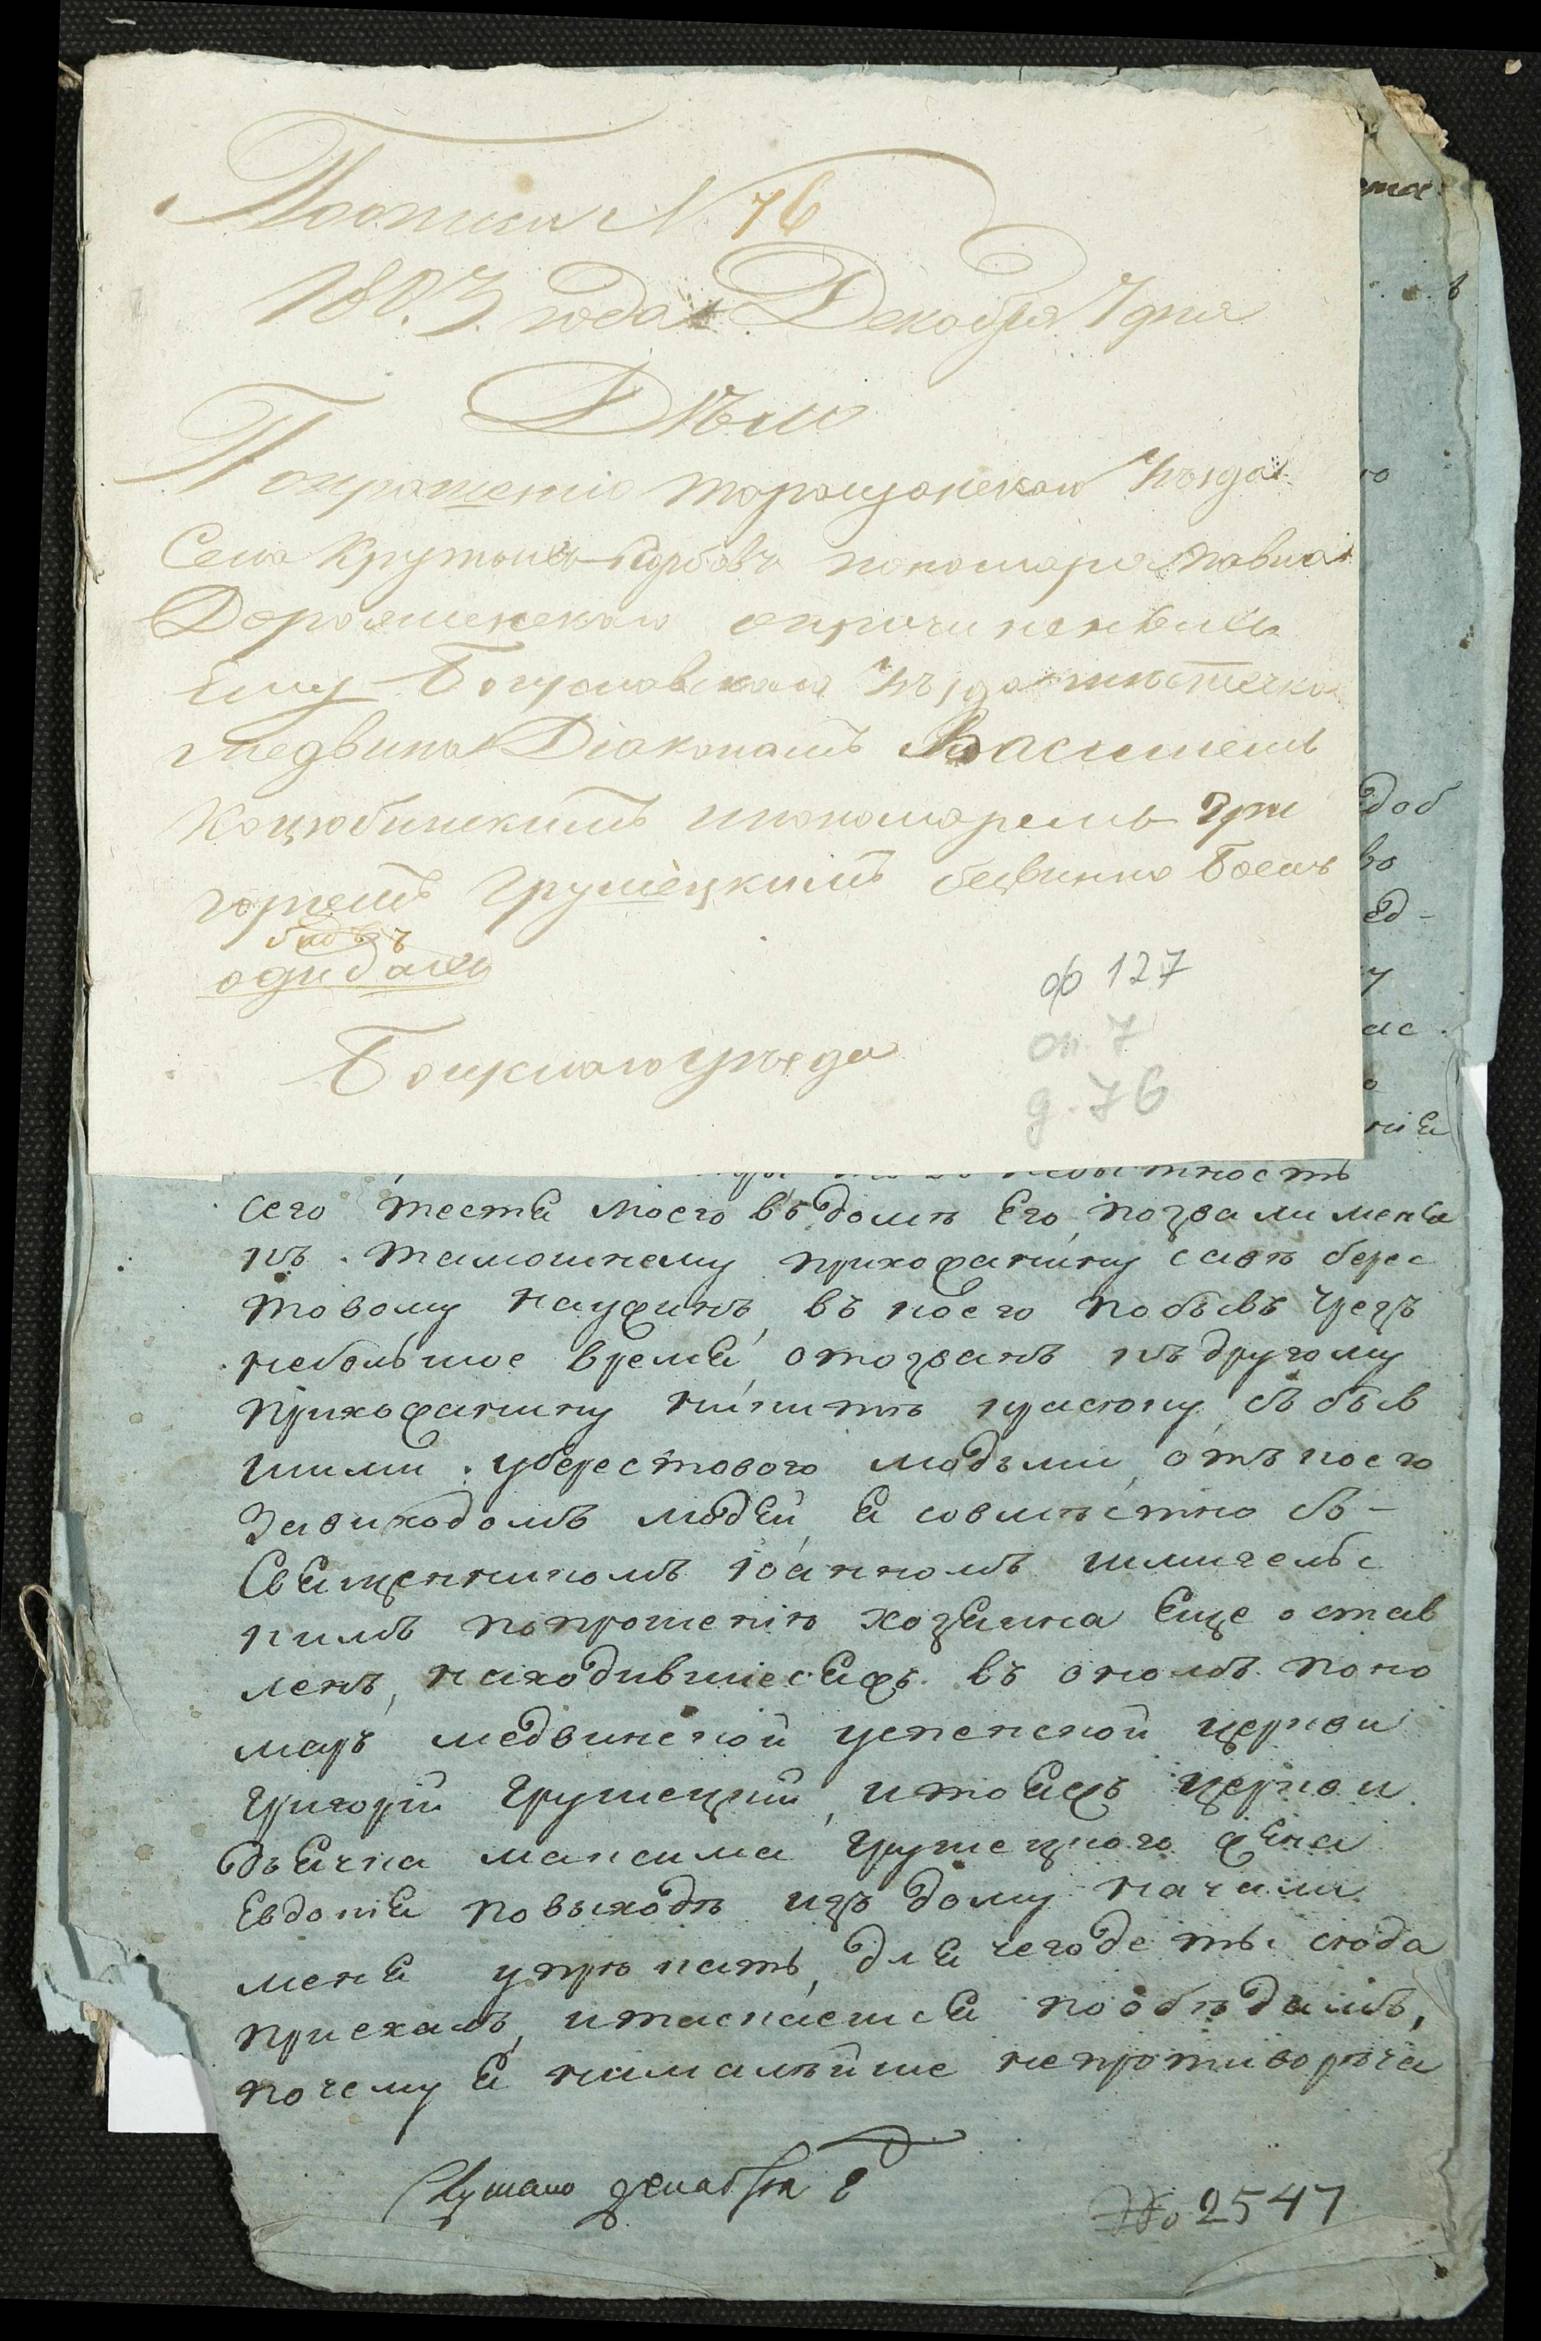 Поописи N 76
1803. года Декабря 7 дня
Дѣло
Попрошенію таращанскаго уѣзда
Села Крутыхъ-Горбовъ пономаря Павла
Дорошенскаго опричиненныхъ
Ему Богуславскаго уѣзда мѣстечка
медвина Діакономъ Василіемъ
Коцюбинскимъ ипономаремъ Гри
горіемъ Грушецкимъ безвинно боехъ
обидахъ
ф 127
оп. 7
д. 76
Богуслаго уѣзда
сего тестя моего въ домѣ его позвали меня
къ тамошнему прихожанину саве берес
товому на ужинъ, въ коего побывъ чрезъ
небольшое время, отозванъ къ другому
прихожанину никитѣ съ быв
шими у берестового людьми, отъ коего
завиходомъ людей, я совмѣстно съ-
Священникомъ Іоанномъ шмигельс
кимъ попрошенію хозяина еще остав
ленъ, находившіесяжъ въ ономъ поно
марь медвинской успенской церкви
григорій грушецкій, итояжъ церкви
дьячка максима грушецкого жена
Евдокія повыходѣ изъ дому начали
меня упрѣкать, для чегоде ты сюда
приехалъ, итаскаешся пообѣдамъ,
почему я нималѣйше непротиворѣча
Слушано декабря 8
№ 2547